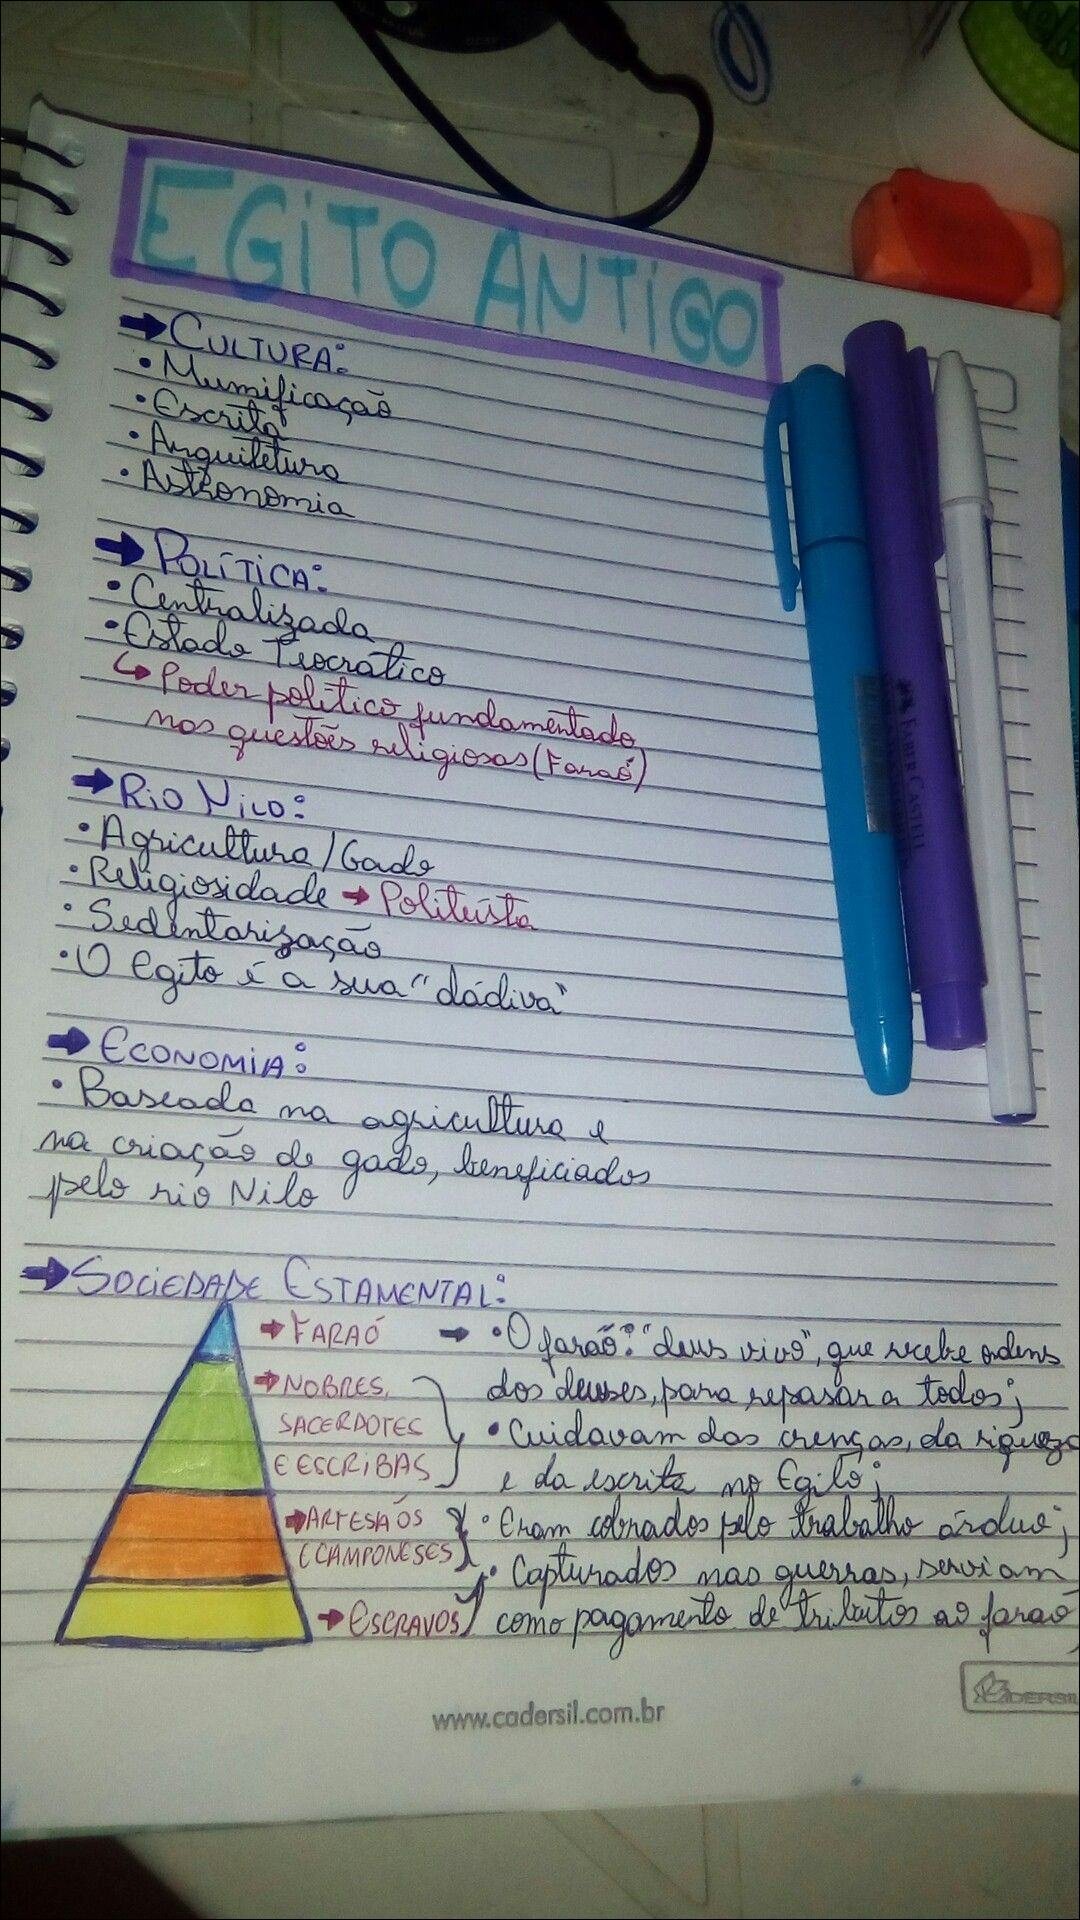 EGITO ANTIGO
➡ CULTURA:
• Mumificação
• Escrita
• Arquitetura
• Astronomia
➡ POLÍTICA:
• Centralizada
• Estado Teocrático
↳ Poder político fundamentado
nas questões religiosas (Faraó)
➡ RIO NILO:
• Agricultura / Gado
• Religiosidade ➡ Politeísta
• Sedentarização
• O Egito é a sua "dádiva"
➡ ECONOMIA:
• Baseada na agricultura e
na criação de gado, beneficiados
pelo rio Nilo
➡ SOCIEDADE ESTAMENTAL:
➡ FARAÓ ➡ • O faraó: "deus vivo", que recebe ordens
dos deuses, para repasar a todos;
➡ NOBRES,
SACERDOTES
E ESCRIBAS
• Cuidavam das crenças, da riqueza
e da escrita no Egito;
➡ ARTESÃOS
E CAMPONESES
• Eram cobrados pelo trabalho árduo;
➡ ESCRAVOS
• Capturados nas guerras, serviam
como pagamento de tributos ao faraó
FABER CASTELL
www.cadersil.com.br
CADERSIL